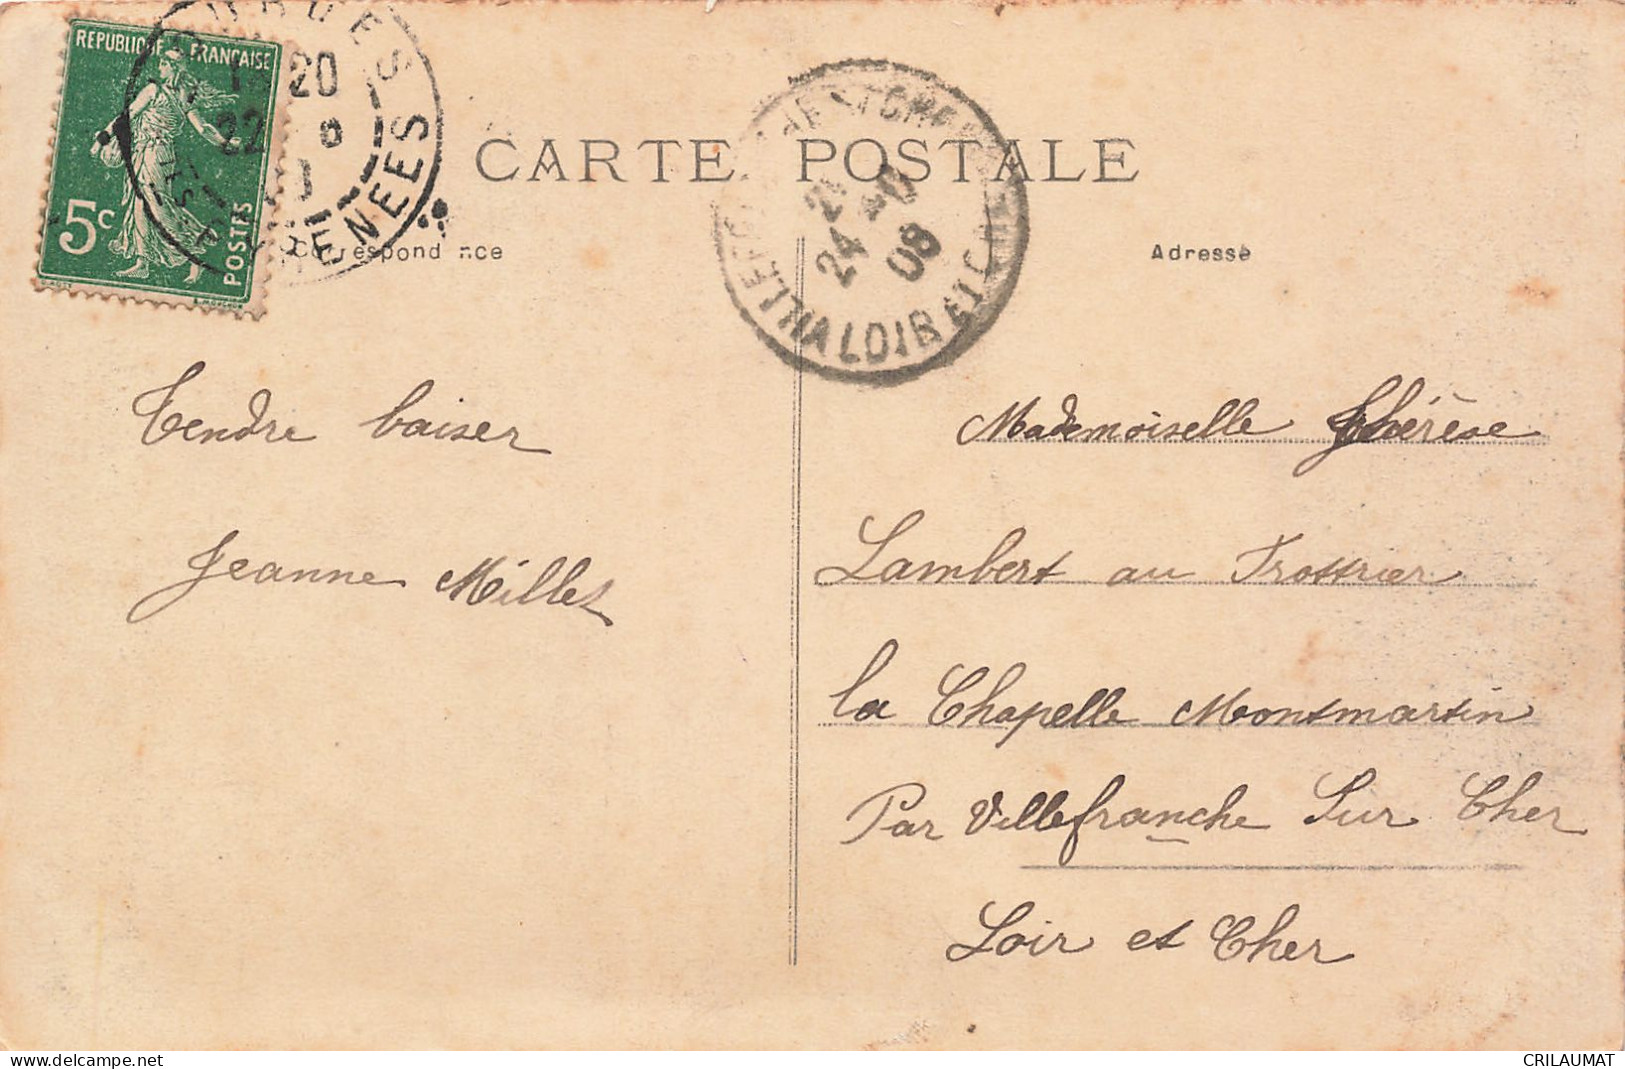 REPUBLIQUE FRANÇAISE
5c
POSTES
20
22
PYRENEES
CARTE POSTALE
Correspondance
Adresse
24
08
LOIR ET CHER
Tendre baiser
Jeanne Millet
Mademoiselle Thérèse
Lambert au Trottrier
la Chapelle Montmartin
Par Villefranche Sur Cher
Loir et Cher
www.delcampe.net
CRILAUMAT